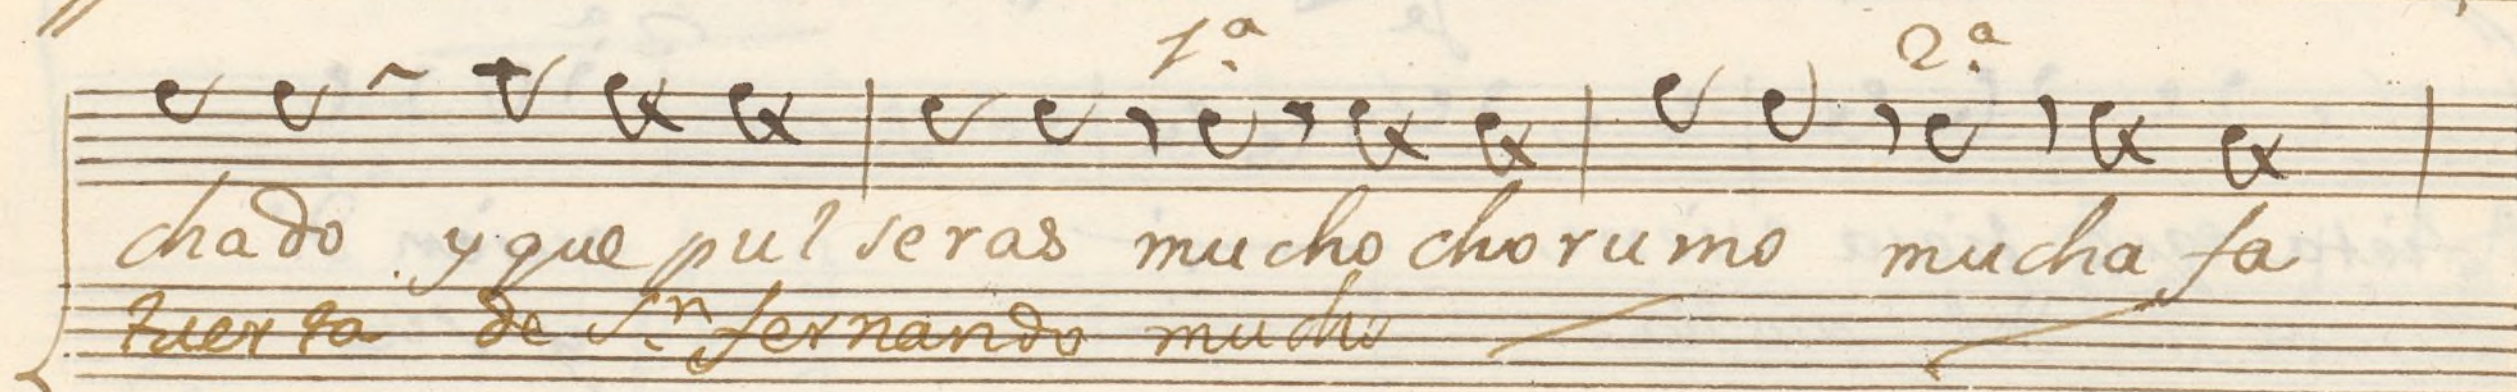 1.ª 2.ª
chado y que pulseras mucho chorumo mucha fa
tuerta de Sn fernando mucho